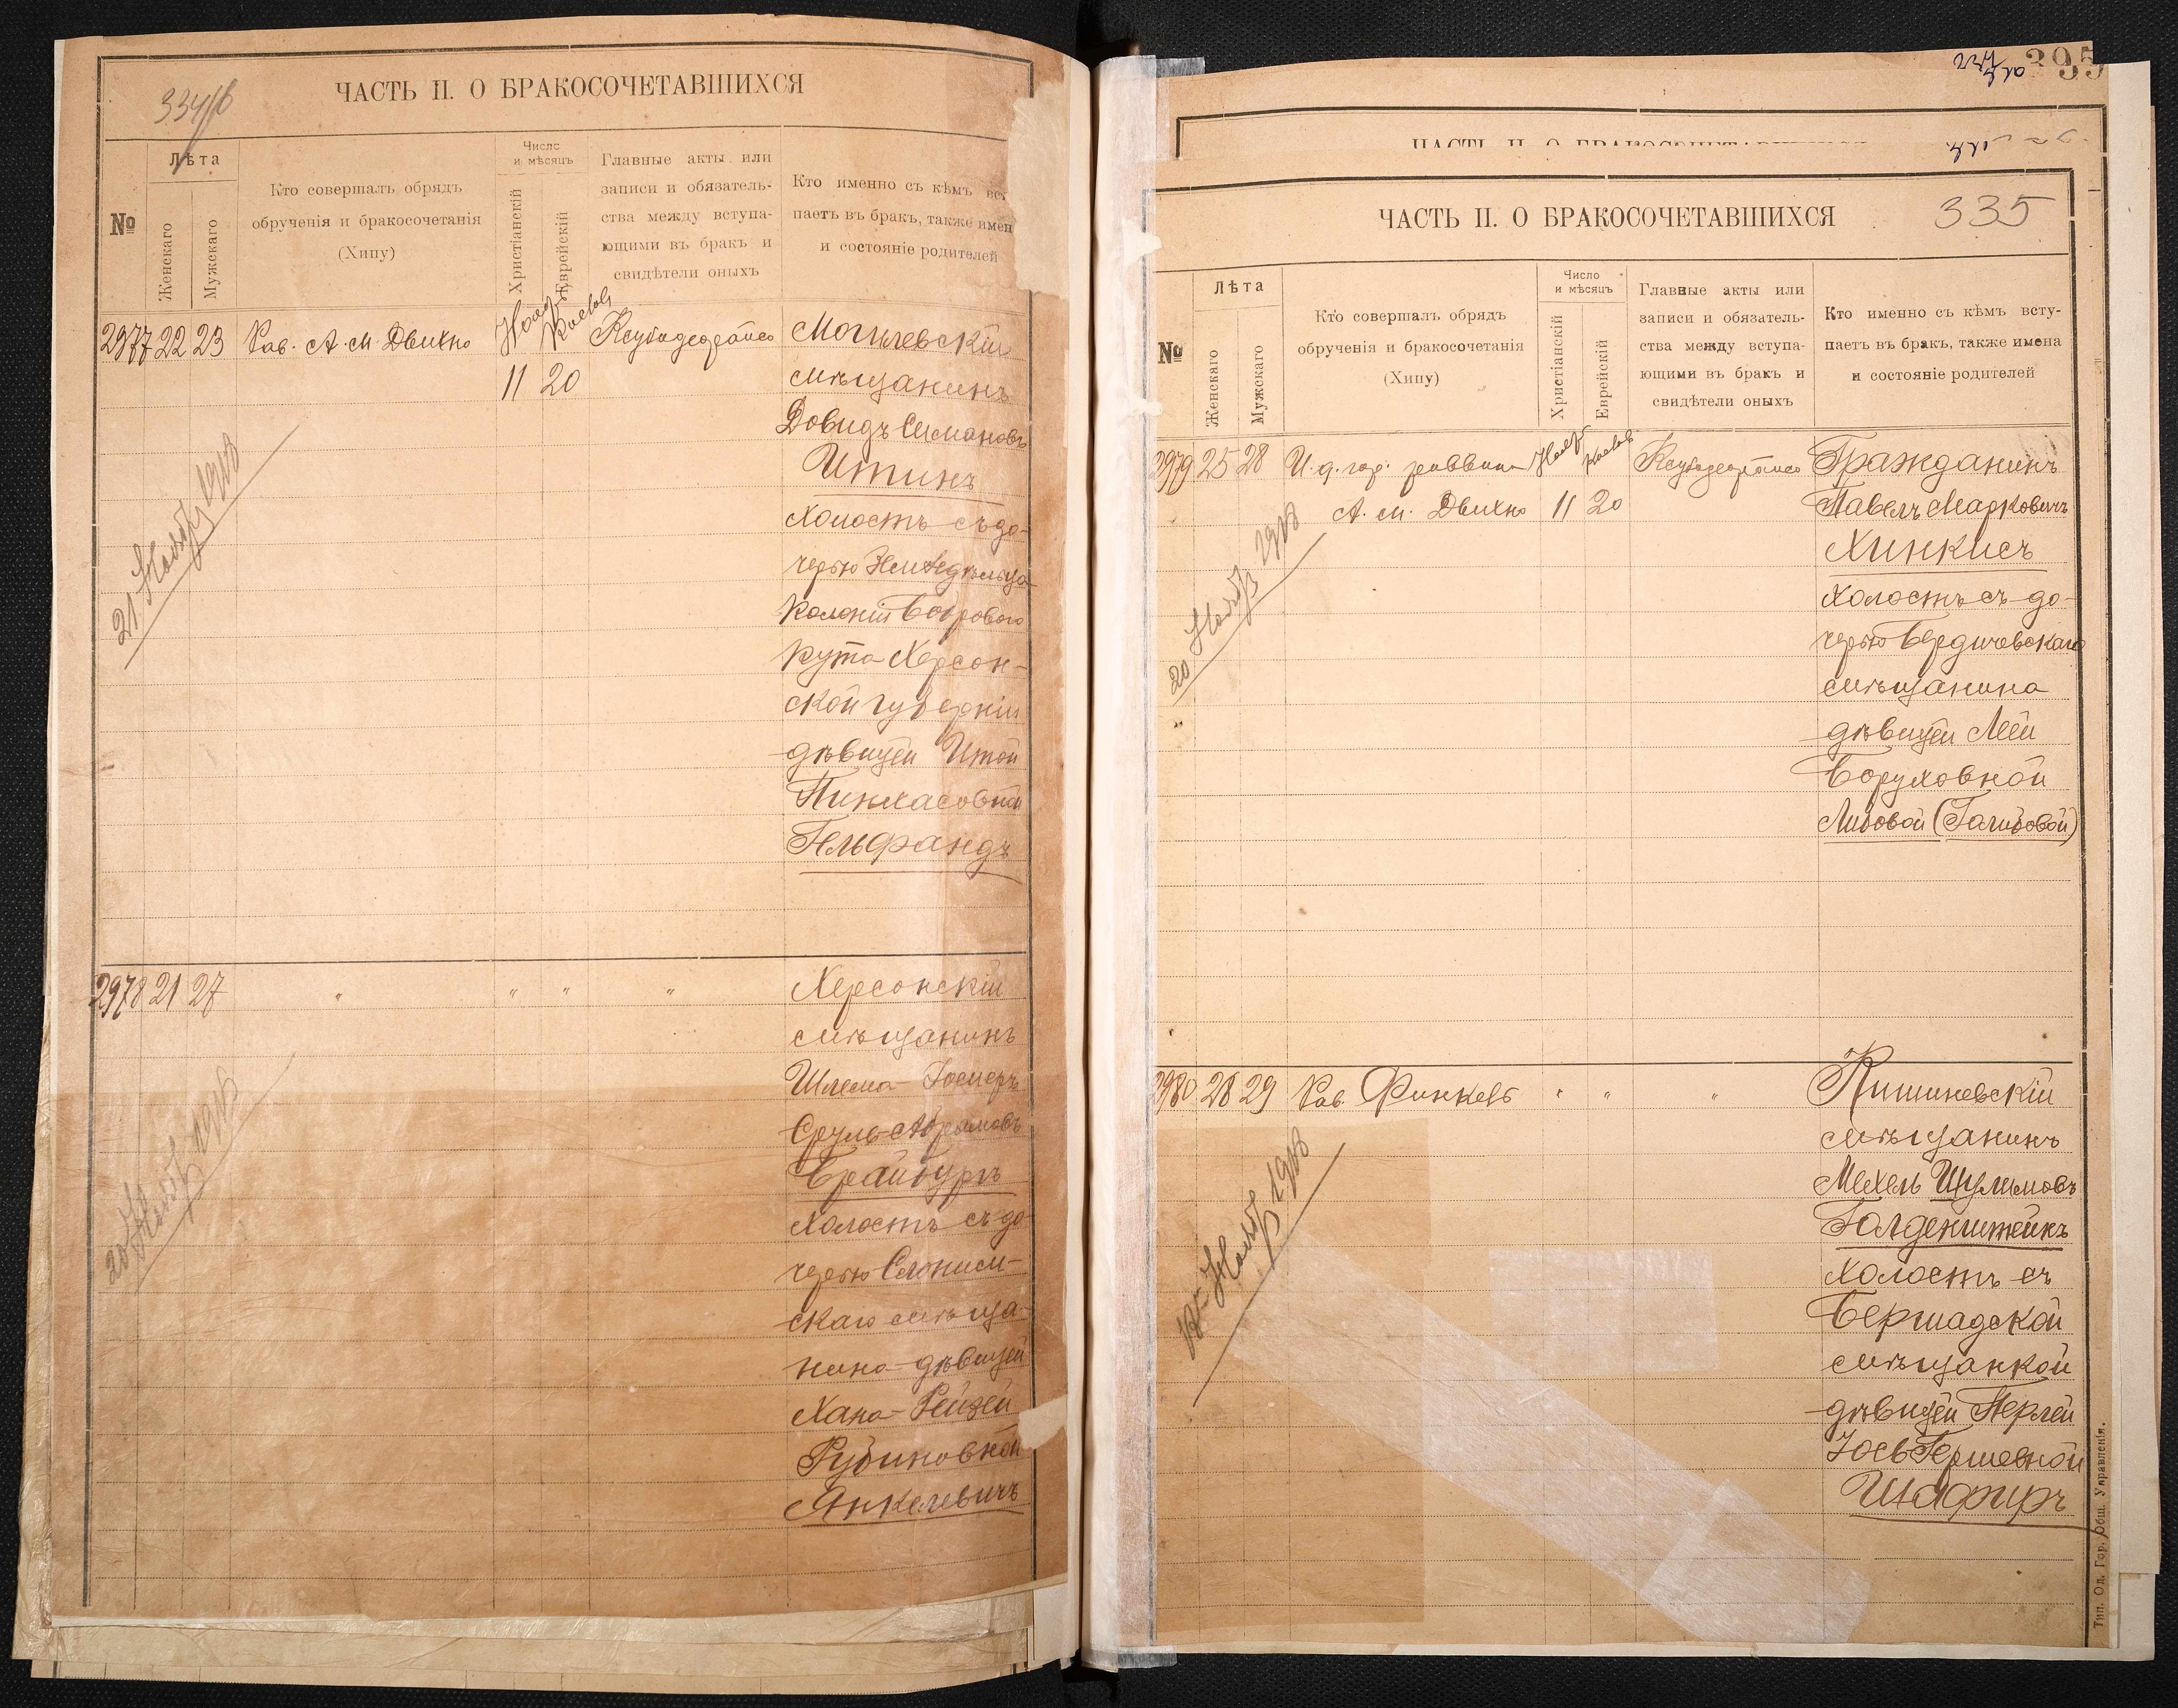 334/б
ЧАСТЬ II. О БРАКОСОЧЕТАВШИХСЯ
№
Лѣта
Женскаго
Мужскаго
Кто совершалъ обрядъ
обрученія и бракосочетанія
(Хипу)
Число
и мѣсяцъ
Христіанскій
Еврейскій
Главные акты или
записи и обязатель-
ства между вступа-
ющими въ бракъ и
свидѣтели оныхъ
Кто именно съ кѣмъ всту
паетъ въ бракъ, также имен
и состояніе родителей
2977 22 23 Рав. А. М. Двихно Нояб.
11 20
Могилевскій
мѣщанинъ
Довидъ Симановъ
Итинъ
холостъ съ до-
черью
колоніи Бобрового
Кута Херсон-
ской губерніи
дѣвицей Итой
Пинхасовной
Гельфандъ
21 Нояб 1918
2978 21 27 " " " "
Херсонскій
мѣщанинъ
Шлема-
Сруль-Абрамовъ
Брайбургъ
холостъ съ до-
черью Слоним-
скаго мѣща-
нина-дѣвицей
Хана-Рейзей
Рубиновной
Янкелевичъ
20 Нояб 1918
395
ЧАСТЬ II. О БРАКОСОЧЕТАВШИХСЯ
335
№
Лѣта
Женскаго
Мужскаго
Кто совершалъ обрядъ
обрученія и бракосочетанія
(Хипу)
Число
и мѣсяцъ
Христіанскій
Еврейскій
Главные акты или
записи и обязатель-
ства между вступа-
ющими въ бракъ и
свидѣтели оныхъ
Кто именно съ кѣмъ всту-
паетъ въ бракъ, также имена
и состояніе родителей
2979 25 28 И. д. гор. раввина Нояб.
А. М. Двихно 11 20
Гражданинъ
Павелъ Марковичъ
Хинкисъ
холостъ съ до-
черью Бердичевскаго
мѣщанина
дѣвицей Леей
Боруховной
Либовой (Голибовой)
20 Нояб 1918
2980 28 29 Рав. Финкель " " "
Кишиневскій
мѣщанинъ
Мехель Шулимовъ
Голденштейнъ
холостъ съ
Бершадской
мѣщанкой
дѣвицей Перлей
Іось-Гершевной
Шафиръ
Нояб 1918
Тип. Од. Гор. Общ. Управленія.